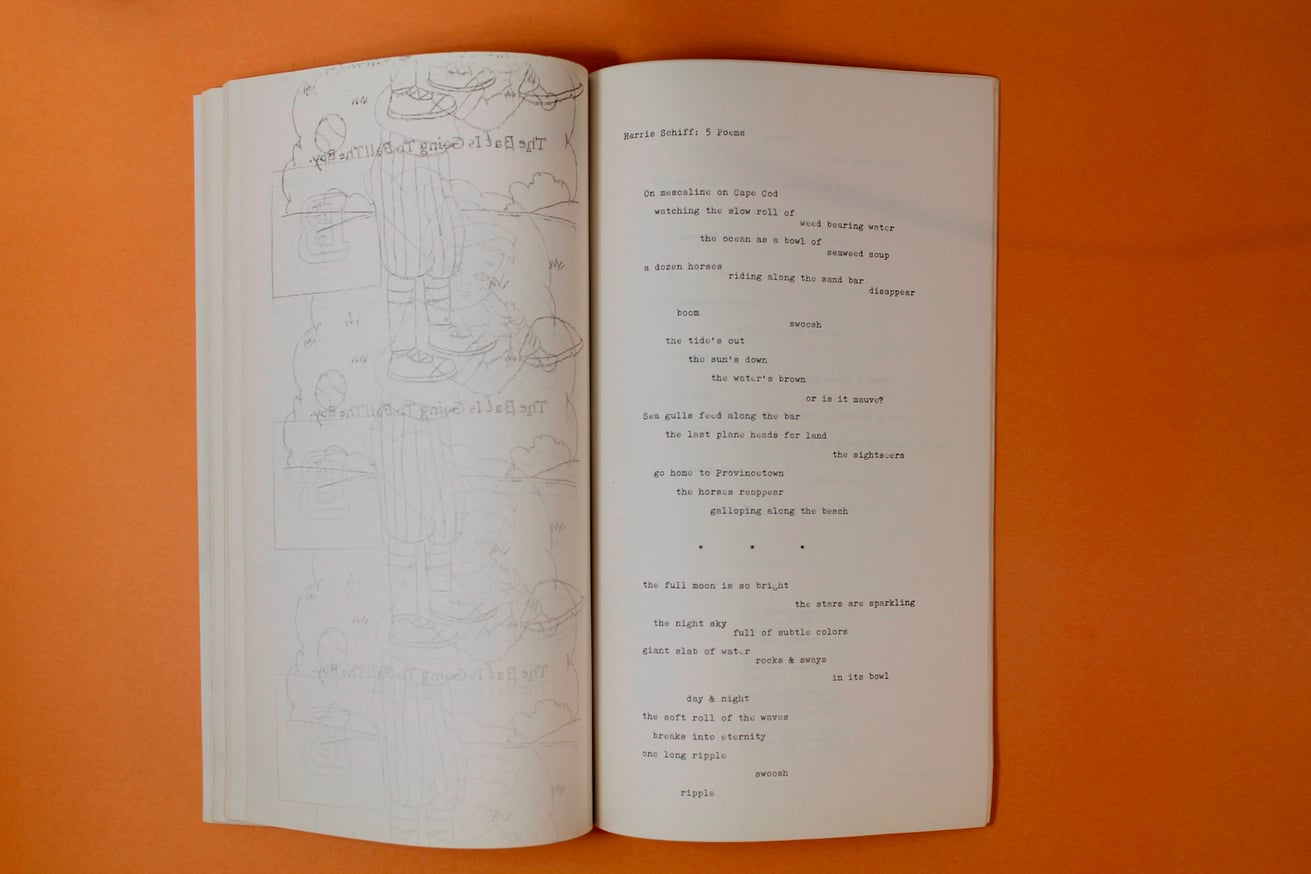 The Bat Is Going To Ball The Boy.
The Bat Is Going To Ball The Boy.
The Bat Is Going To Ball The Boy.
Harris Schiff: 5 Poems
On mescaline on Cape Cod
watching the slow roll of
weed bearing water
the ocean as a bowl of
seaweed soup
a dozen horses
riding along the sand bar
disappear
boom
swoosh
the tide's out
the sun's down
the water's brown
or is it mauve?
Sea gulls feed along the bar
the last plane heads for land
the sightseers
go home to Provincetown
the horses reappear
galloping along the beach
* * *
the full moon is so bright
the stars are sparkling
the night sky
full of subtle colors
giant slab of water
rocks & sways
in its bowl
day & night
the soft roll of the waves
breaks into eternity
one long ripple
swoosh
ripple